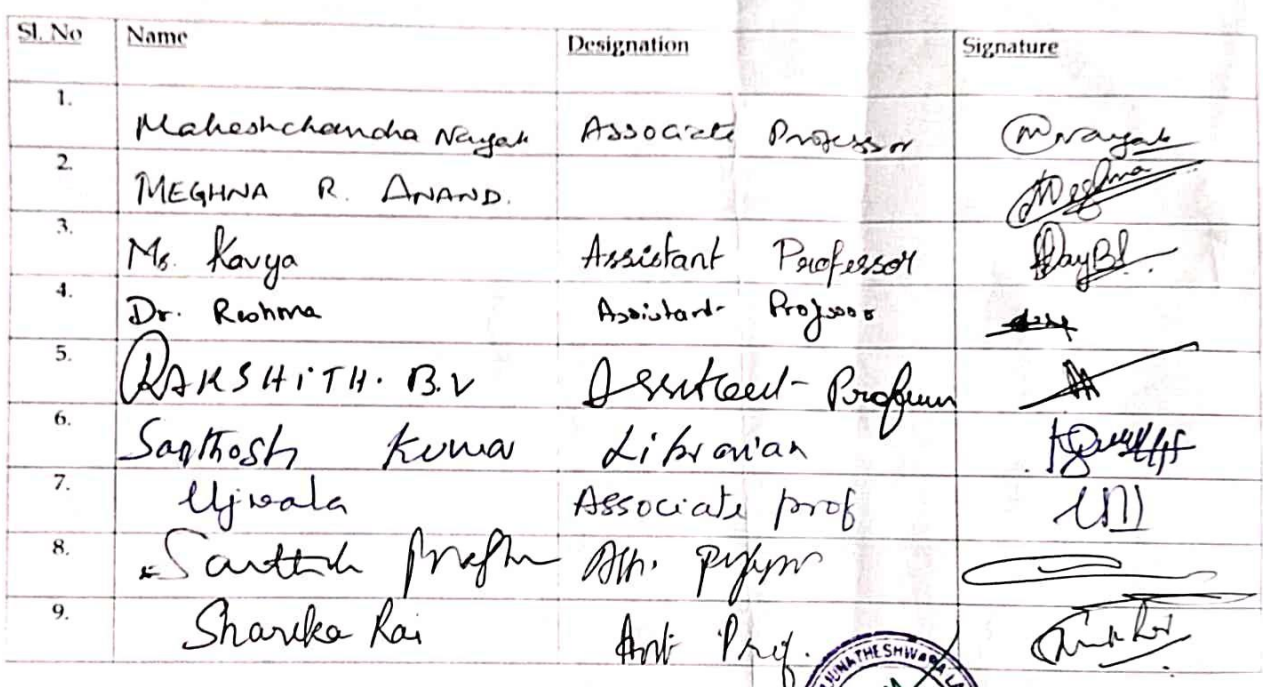 Sl. No Name Designation Signature
1. Maheshchandra Nayak Associate Professor Mnayak
2. MEGHNA R. ANAND. Meghna
3. Ms. Kavya Assistant Professor
4. Dr. Reshma Assistant Professor
5. RAKSHITH. B.V Assistant Professor
6. Santhosh Kumar Librarian
7. Ujwala Associate prof
8. Santhosh Prabhu
9. Sharika Rai Asst Prof.